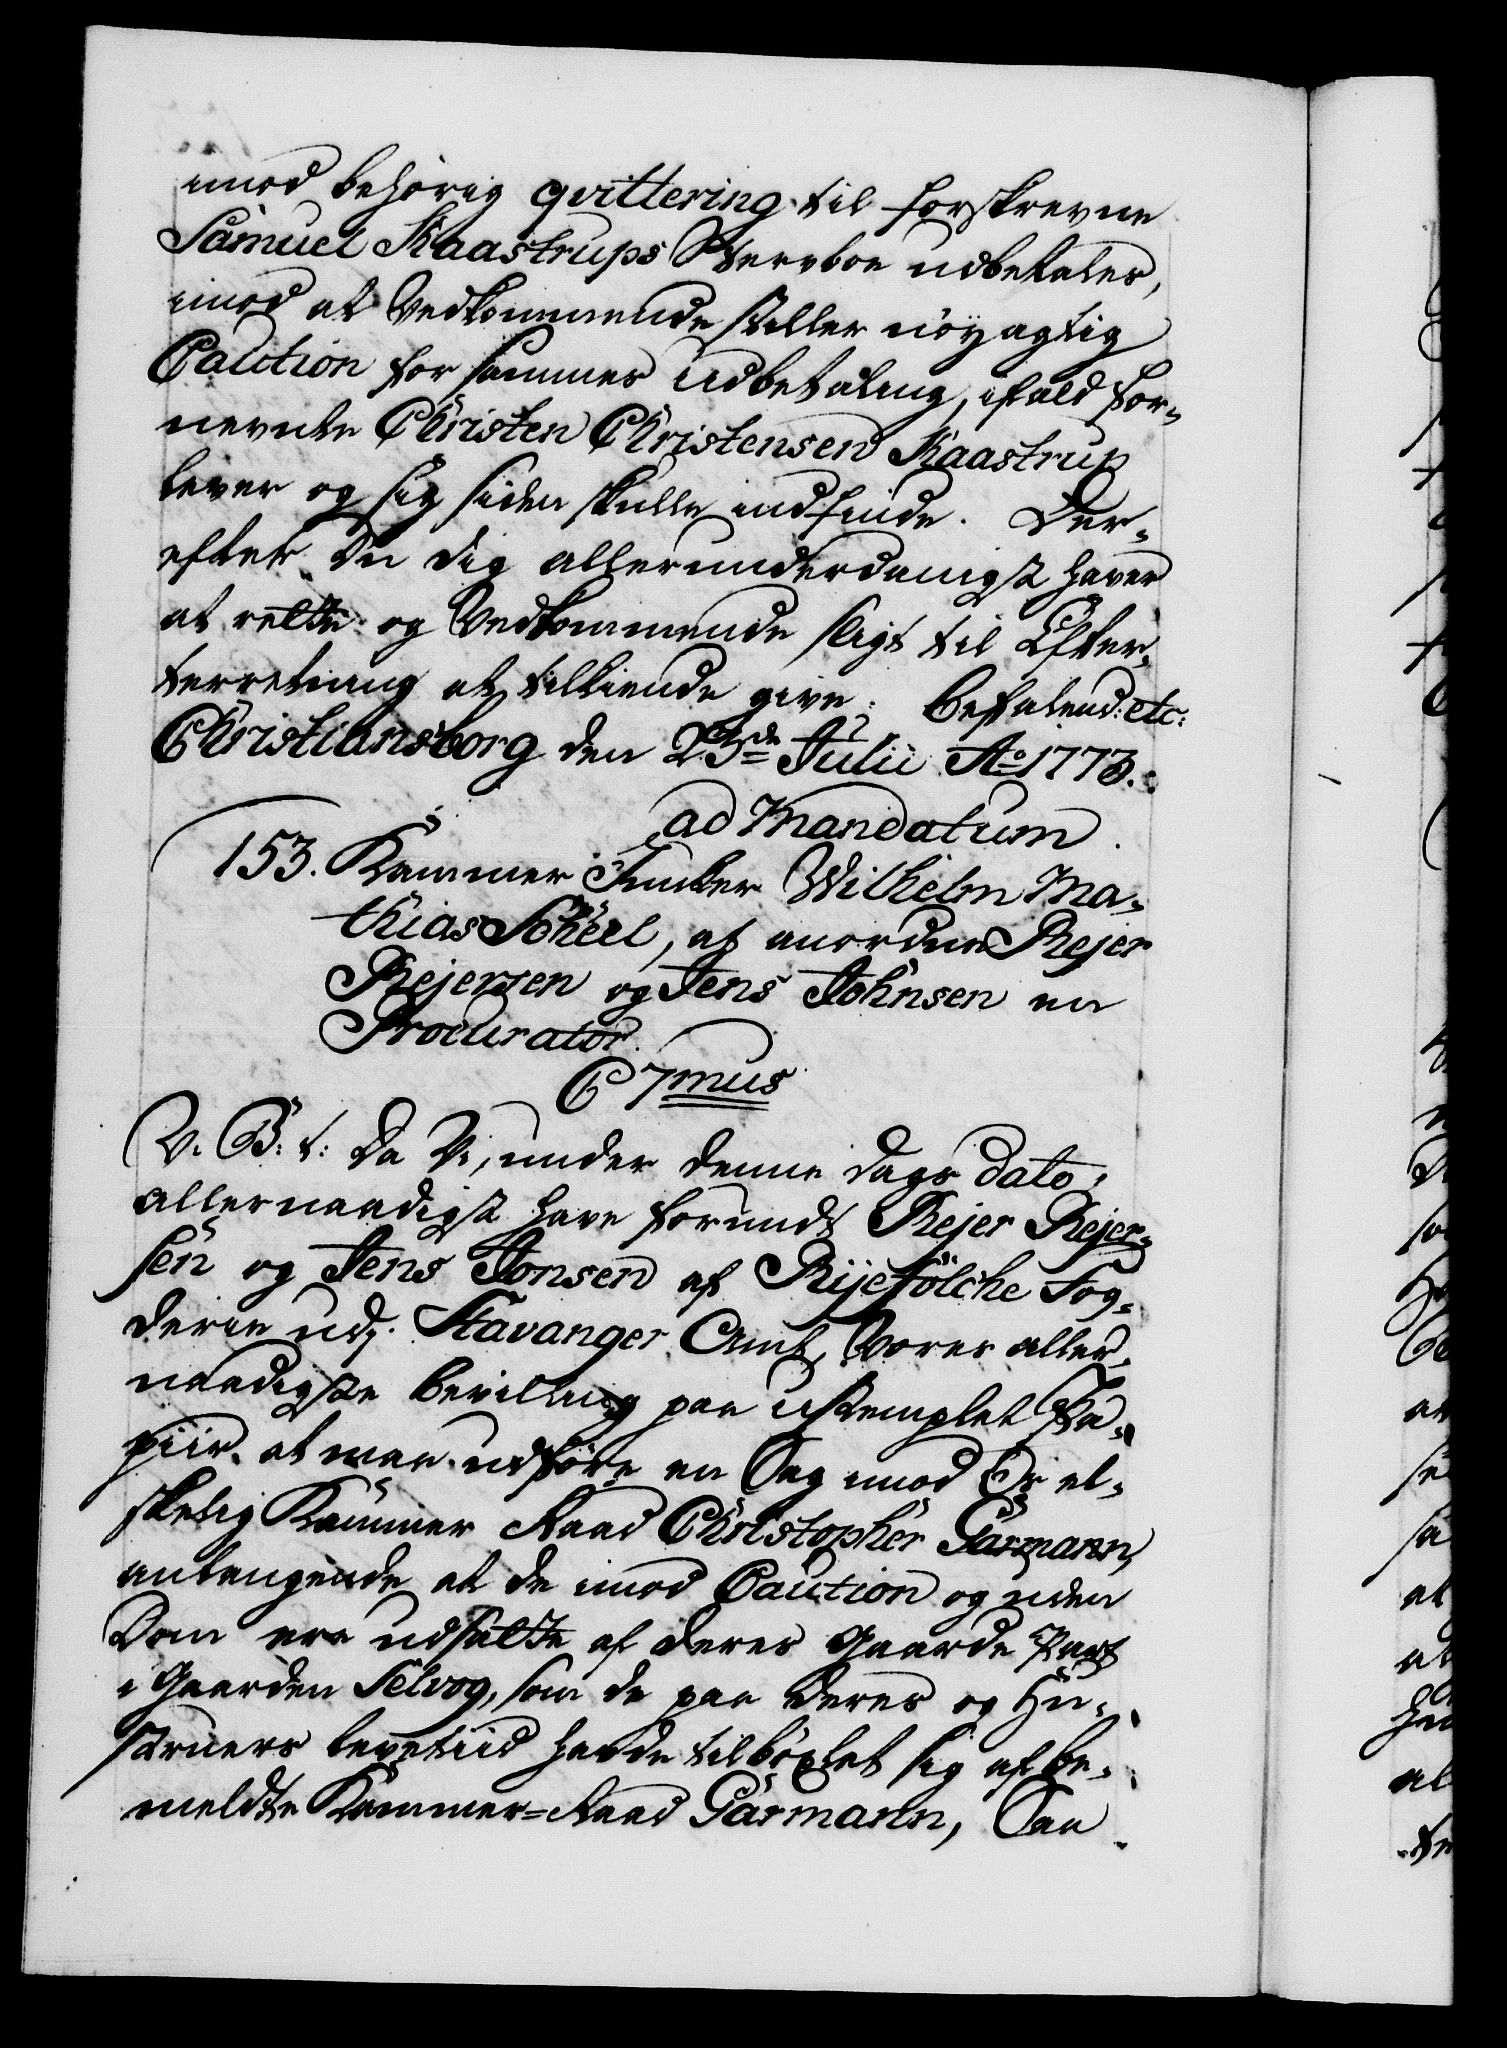 imod behörig qvittering til forskrevne
Samuel Kaastrups Stervboe udbetales,
imod at Vedkommende stiller nöyagtig
Caution for sammes Udbetaling, ifald for-
nevnte Christen Christensen Kaastrup
lever og sig siden skulle indfinde. Der-
efter Du dig allerunderdanigst haver
at rette og Vedkommende sligt til Efter-
terretning at tilkiende give. Befalend: etc:
Christiansborg den 23de Julii Ao 1773.
ad Mandatum.
153. Kammer Junker Wilhelm Ma-
thias Scheel, at anordne Rejer
Rejersen og Jens Johnsen en
Procurator.
C 7mus
V. G: t: Da Vi, under denne Dags dato,
allernaadigst have forundt Rejer Rejer-
sen og Jens Jonsen af Rijefölche Fog-
derie udj Stavanger Amt, Vores aller-
naadigste Bevilling paa ustemplet Pa-
piir at maa udföre en Sag imod Os el-
skelig Kammer Raad Christopher Garmann,
anlangende at de imod Caution og uden
Dom ere udsatte af deres Gaarde Part
i Gaarden Selvog, som de paa deres og Hu-
struers levetiid havde tilböxlet sig af be-
meldte Kammer-Raad Garmann, Saa